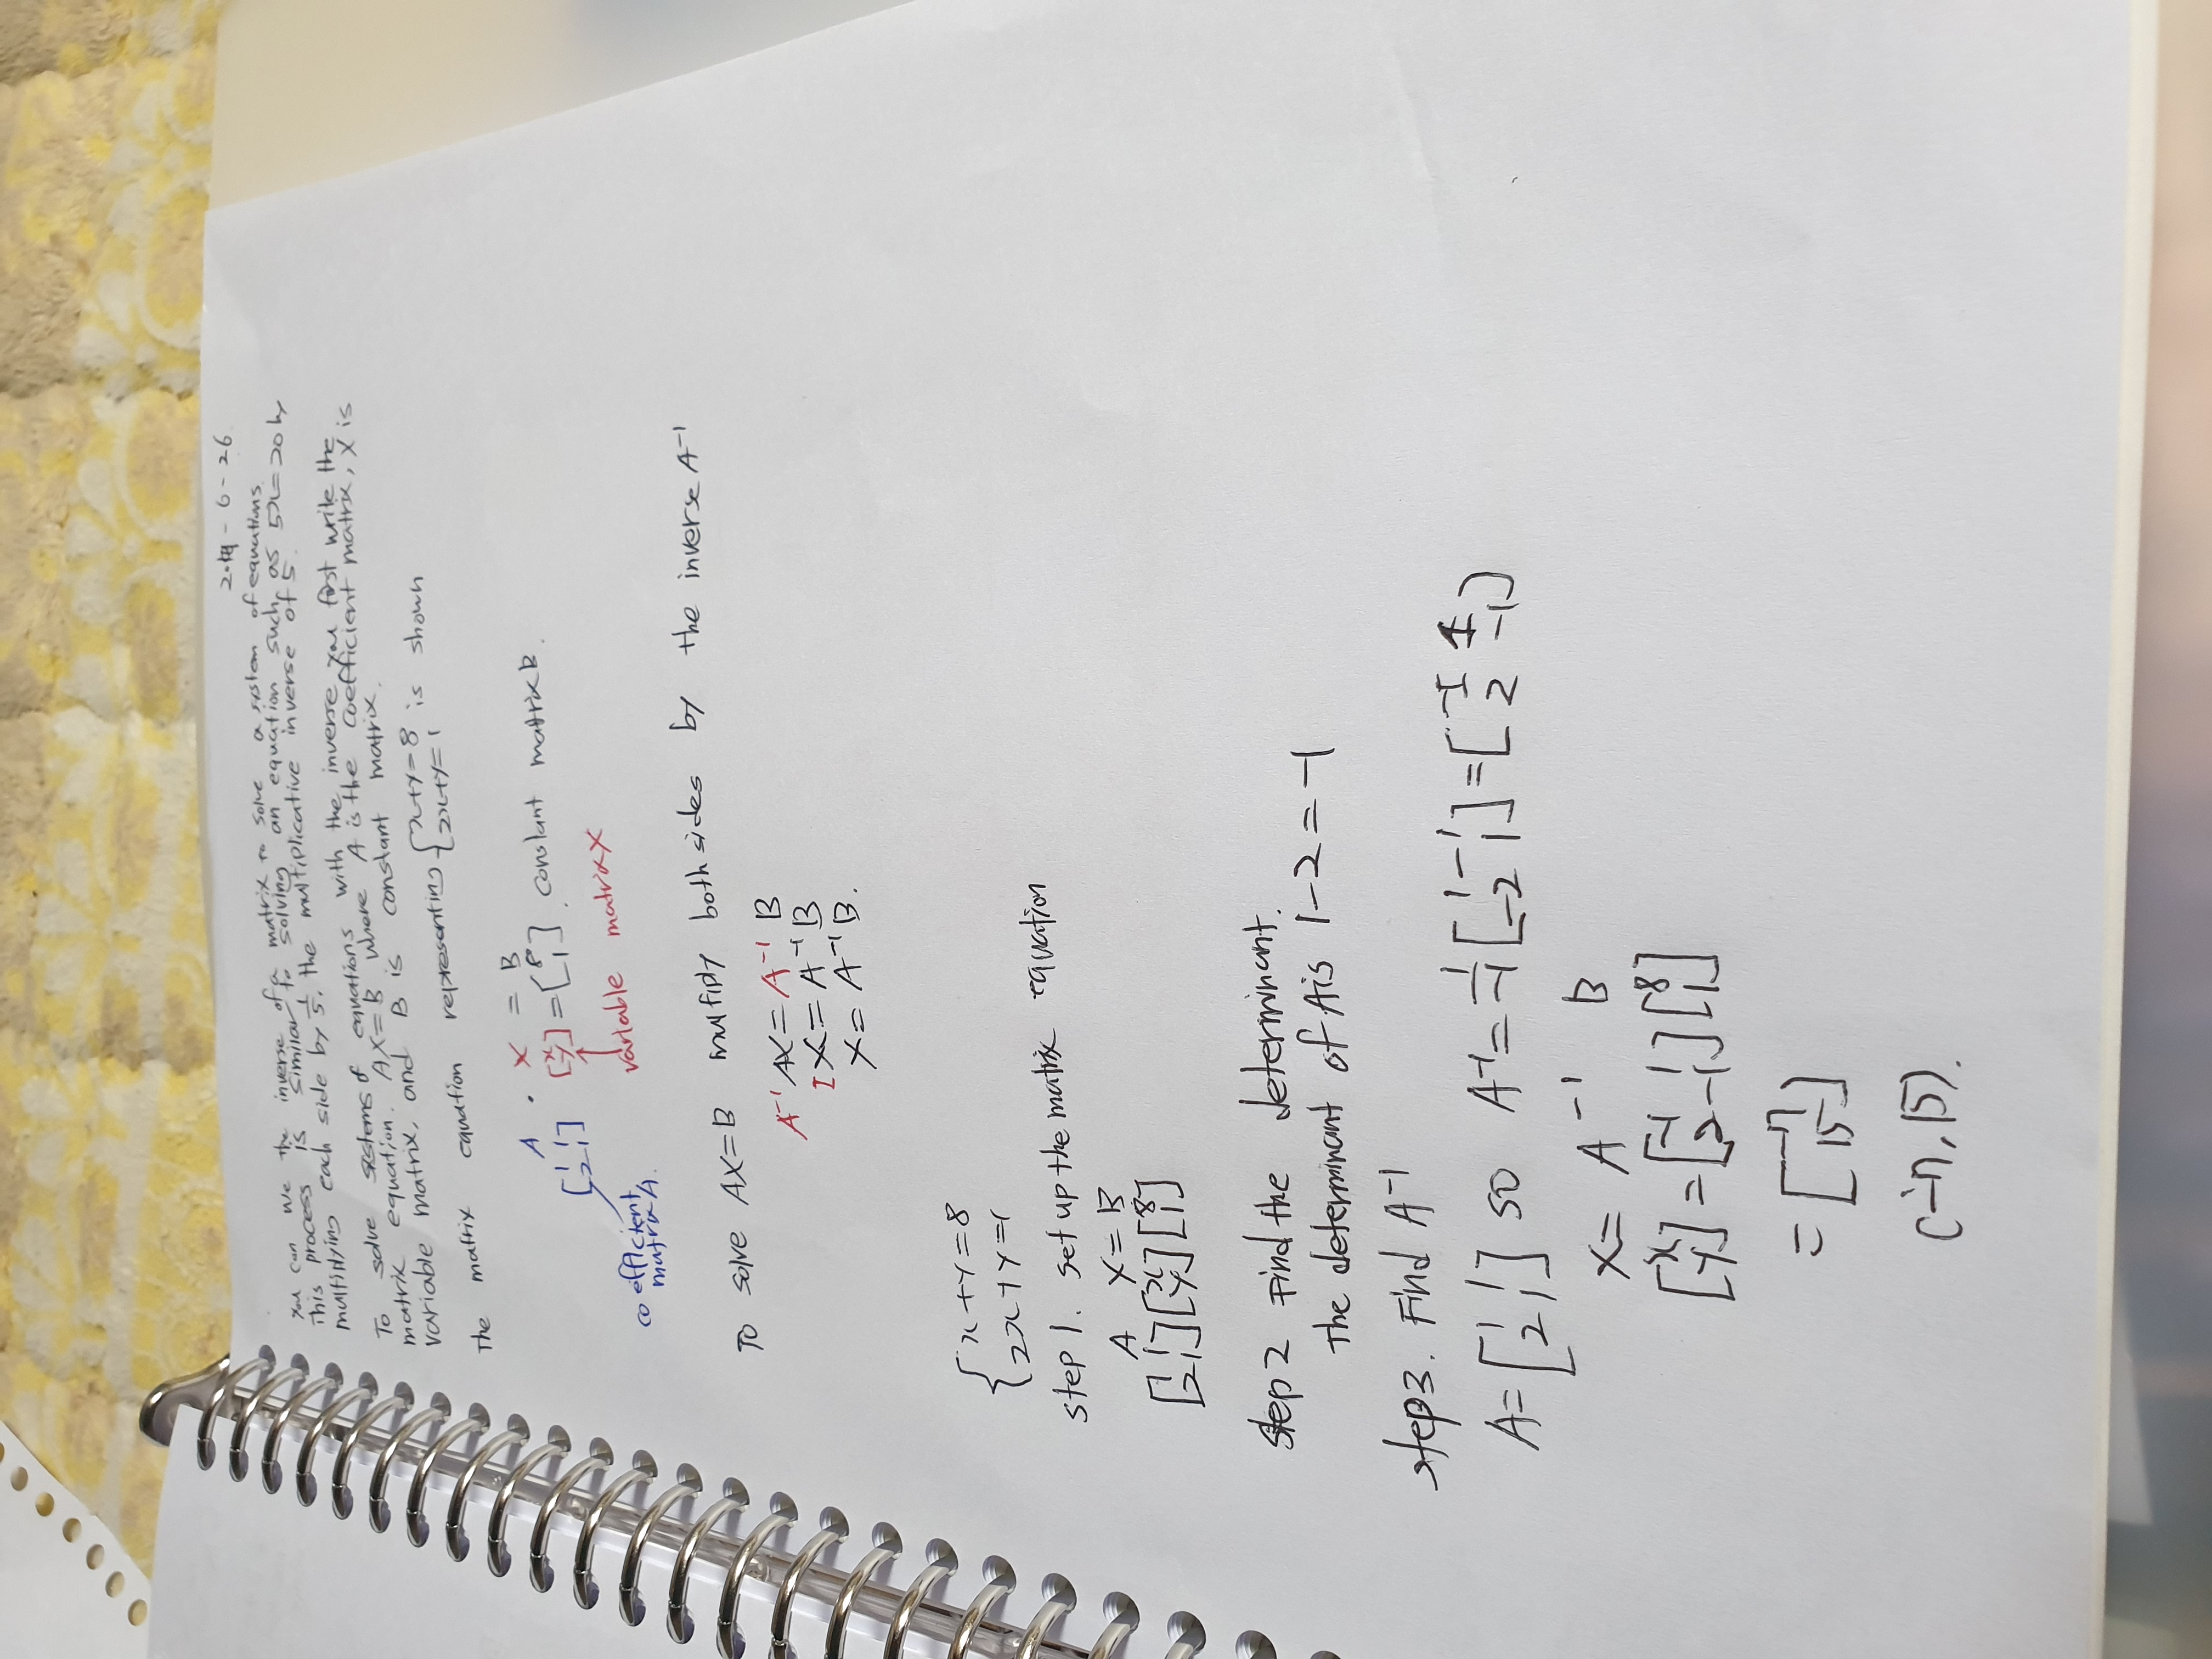 2019-6-26.
You can use the inverse of a matrix to solve a system of equations.
This process is similar to solving an equation such as 5x=20 by
multiplying each side by 1/5, the multiplicative inverse of 5.
To solve systems of equations with the inverse you first write the
matrix equation. AX=B where A is the coefficient matrix, X is
variable matrix, and B is constant matrix.
The matrix equation representing { x+y=8 2x+y=1 is shown
A · X = B
[1 1 2 1] [x y] = [8 1]. constant matrix B.
coefficient matrix A.
variable matrix X
To solve AX=B multiply both sides by the inverse A⁻¹
A⁻¹AX=A⁻¹B
IX=A⁻¹B
X=A⁻¹B.
{ x+y=8
2x+y=1
step 1. set up the matrix equation
A X=B
[1 1 2 1][x y][8 1]
step 2 Find the determinant.
The determinant of A is 1-2=-1
step 3. Find A⁻¹
A=[1 1 2 1] so A⁻¹=1/-1[1 -1 -2 1]=[-1 1 2 -1]
X= A⁻¹ B
[x y]=[-1 1 2 -1][8 1]
=[-7 15]
(-7,15).